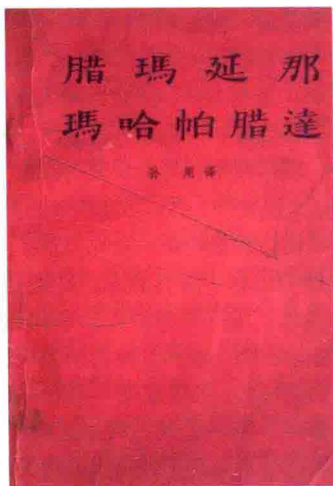 腊瑪延那
瑪哈帕腊達
孙用譯